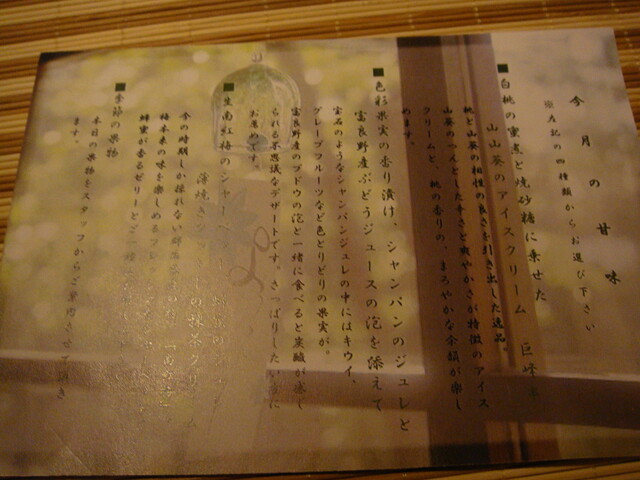 今月の甘味
※左記の四種類からお選び下さい
■白桃の蜜煮と焼砂糖に乗せた
山山葵のアイスクリーム 巨峰
桃と山葵の相性の良さを引き出した逸品。
山葵のつんとした辛さと爽やかさが特徴のアイス
クリームと、桃の香りの、まろやかな余韻が楽し
めます。
■色彩果実の香り漬け、シャンパンのジュレと
富良野産ぶどうジュースの泡を添えて
宝石のようなシャンパンジュレの中にはキウイ、
グレープフルーツなど色とりどりの果実が。
富良野産のブドウの泡と一緒に食べると炭酸が感じ
られる不思議なデザートです。さっぱりしたい方に
お薦めです。
■生南紅梅のシャー
薄焼き の抹茶クリーム
今の時期しか採れない
梅本来の味を楽しめる
蜂蜜が香るゼリーとご一緒に
■季節の果物
本日の果物をスタッフからご案内させて頂き
ます。